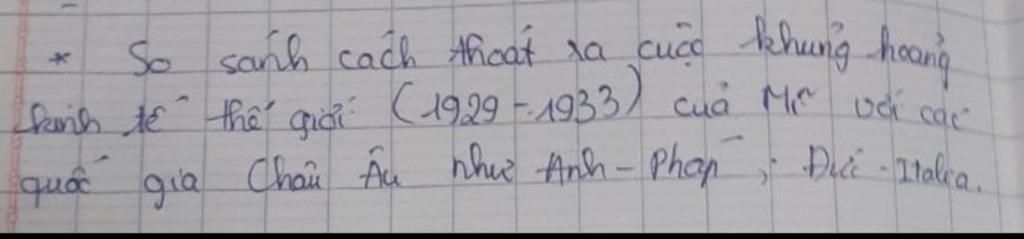 * So sánh cách thoát ra cuộc khủng hoảng
kinh tế thế giới (1929-1933) của Mĩ với các
quốc gia Châu Âu như Anh-Pháp, Đức-Italia.